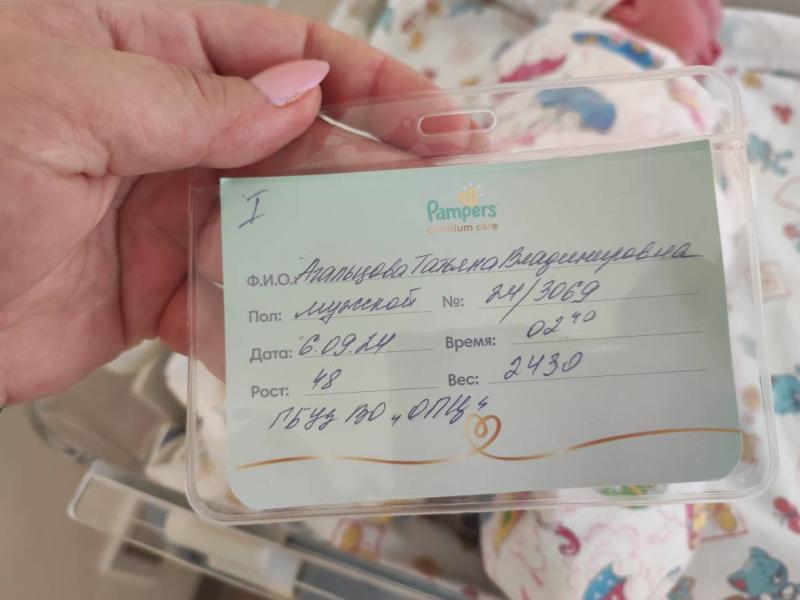 I
Pampers
premium care
Ф.И.О.: Агальцова Татьяна Владимировна
Пол: мужской №: 24/3069
Дата: 6.09.24 Время: 02 40
Рост: 48 Вес: 2430
ГБУЗ ВО „ОПЦ"